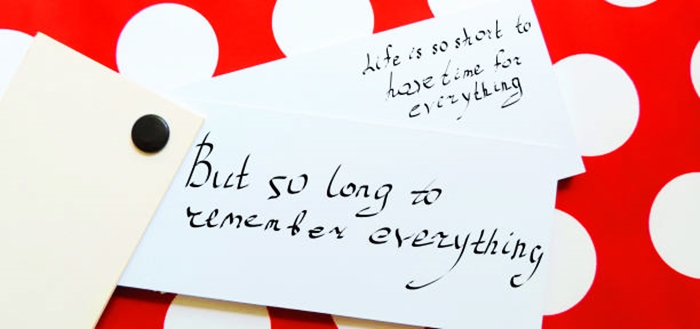 Life is so short to
have time for
everything
But so long to
remember everything